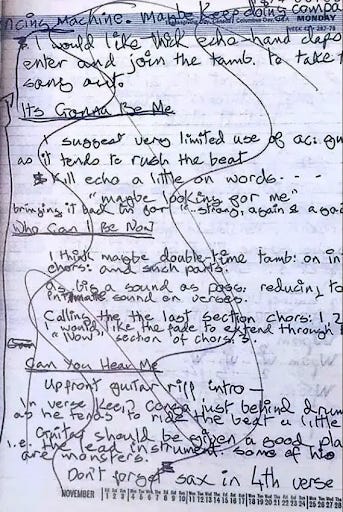 ncing Machine. Maybe keep doing compa
Columbus Day, USA MONDAY
I would like thick echo-hand claps
enter and join the tamb. to take t
song out.
Its Gonna Be Me
I suggest very limited use of ac. gui
as it tends to rush the beat
Kill echo a little on words. - - -
"maybe looking for me"
bringing it back in for "strong, again & aga
Who Can I Be Now
I think maybe double-time tamb: on in
chors: and such parts.
as big a sound as poss. reducing to
intimate sound on verses.
Calling the the last section chors: 1, 2
I would like the fade to extend through
"Now" section of chors: 3.
Can You Hear Me
Upfront guitar riff intro —
In verse keep Conga just behind drum
as he tends to ride the beat a little
Guitar should be given a good pla
i.e. the lead instrument. some of his
are monsters.
Don't forget sax in 4th verse
NOVEMBER